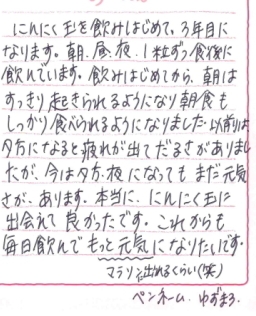 にんにく玉を飲みはじめて、3年目に
なります。朝、昼、夜、1粒ずつ食後に
飲んでいます。飲みはじめてから、朝は
すっきり起きられるようになり朝食も
しっかり食べられるようになりました。以前は
夕方になると疲れが出てだるさがありまし
たが、今は夕方、夜になっても まだ元気
さが、あります。本当に、にんにく玉に
出会えて 良かったです。これからも
毎日飲んで もっと元気になりたいです。
マラソン出れるくらい(笑)
ペンネーム ゆずまる